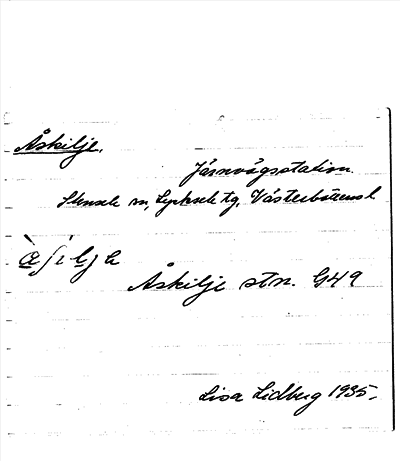 Åskilje.
Järnvägsstation.
Stensele sn, Lycksele tg, Västerbottens l
Åskilje stn. G49
Lisa Lidberg 1935.